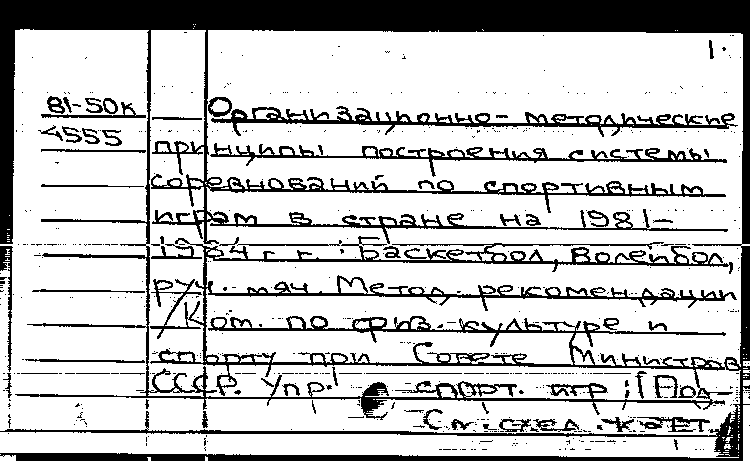 1.
81-50к Организационно-методические
4555 принципы построения системы
соревнований по спортивным
играм в стране на 1981-
1984 г г. : Баскетбол, Волейбол,
руч. мяч. Метод. рекомендации
/Ком. по физ. культуре и
спорту при Совете Министров
СССР. Упр. спорт. игр ; [Под-
См. след. карт.